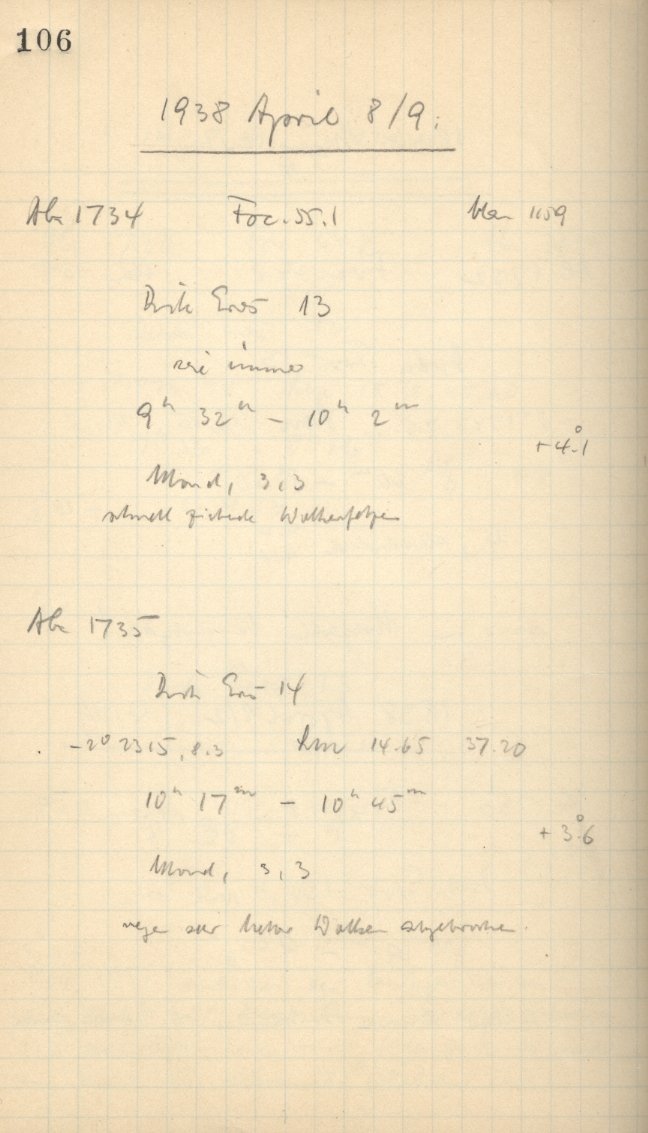 106
1938 April 8/9.
1734 Foc. 55.1 blau 1159
Eros 13
wie immer
9h 32m – 10h 2m
+4°.1
Mond, 3, 3
schnell ziehende Wolkenfetzen
1735
Eros 14
-2° 2315, 8.3 14.65 37.20
10h 17m – 10h 45m
+3°.6
Mond, 3, 3
wegen Wolken abgebrochen.